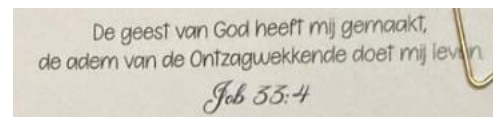 De geest van God heeft mij gemaakt,
de adem van de Ontzagwekkende doet mij leven
Job 33:4